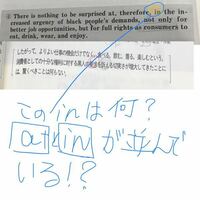 There is nothing to be surprised at, therefore, in the in-
creased urgency of black people's demands, not only for
better job opportunities, but for full rights as consumers to
eat, drink, wear, and enjoy.
したがって、よりよい仕事の機会だけでなく、食べる、飲む、着る、楽しむという、
消費者としての十分な権利に対する黒人の要求を訴える切実さが増大してきたことに
は、驚くべきことは何もない。
このinは何?
atとinが並んで
いる!?